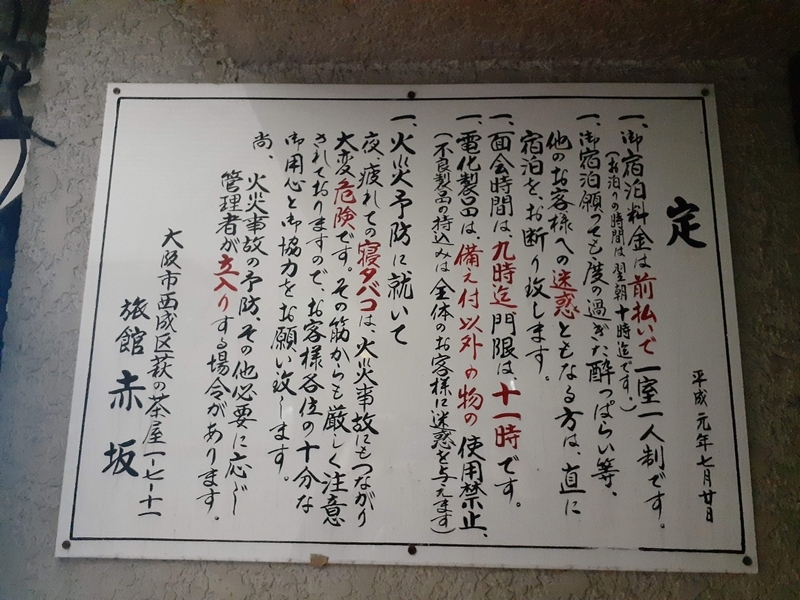 定
平成元年七月廿日
一、御宿泊料金は前払いで一室一人制です。
（お泊りの時間は翌朝十時迄です。）
一、御宿泊願っても度の過ぎた酔っぱらい等、
他のお客様への迷惑ともなる方は、直に
宿泊を、お断り致します。
一、面会時間は、九時迄門限は十一時です。
一、電化製品は、備え付以外の物の使用禁止、
（不良製品の持込みは全体のお客様に迷惑を与えます）
一、火災予防に就いて
夜、疲れての寝タバコは、火災事故にもつながり
大変危険です。その筋からも厳しく注意
されておりますので、お客様各位の十分な
御用心と御協力をお願い致します。
尚、火災事故の予防、その他必要に応じ
管理者が立入りする場合があります。
大阪市西成区萩の茶屋一-七-十一
旅館赤坂